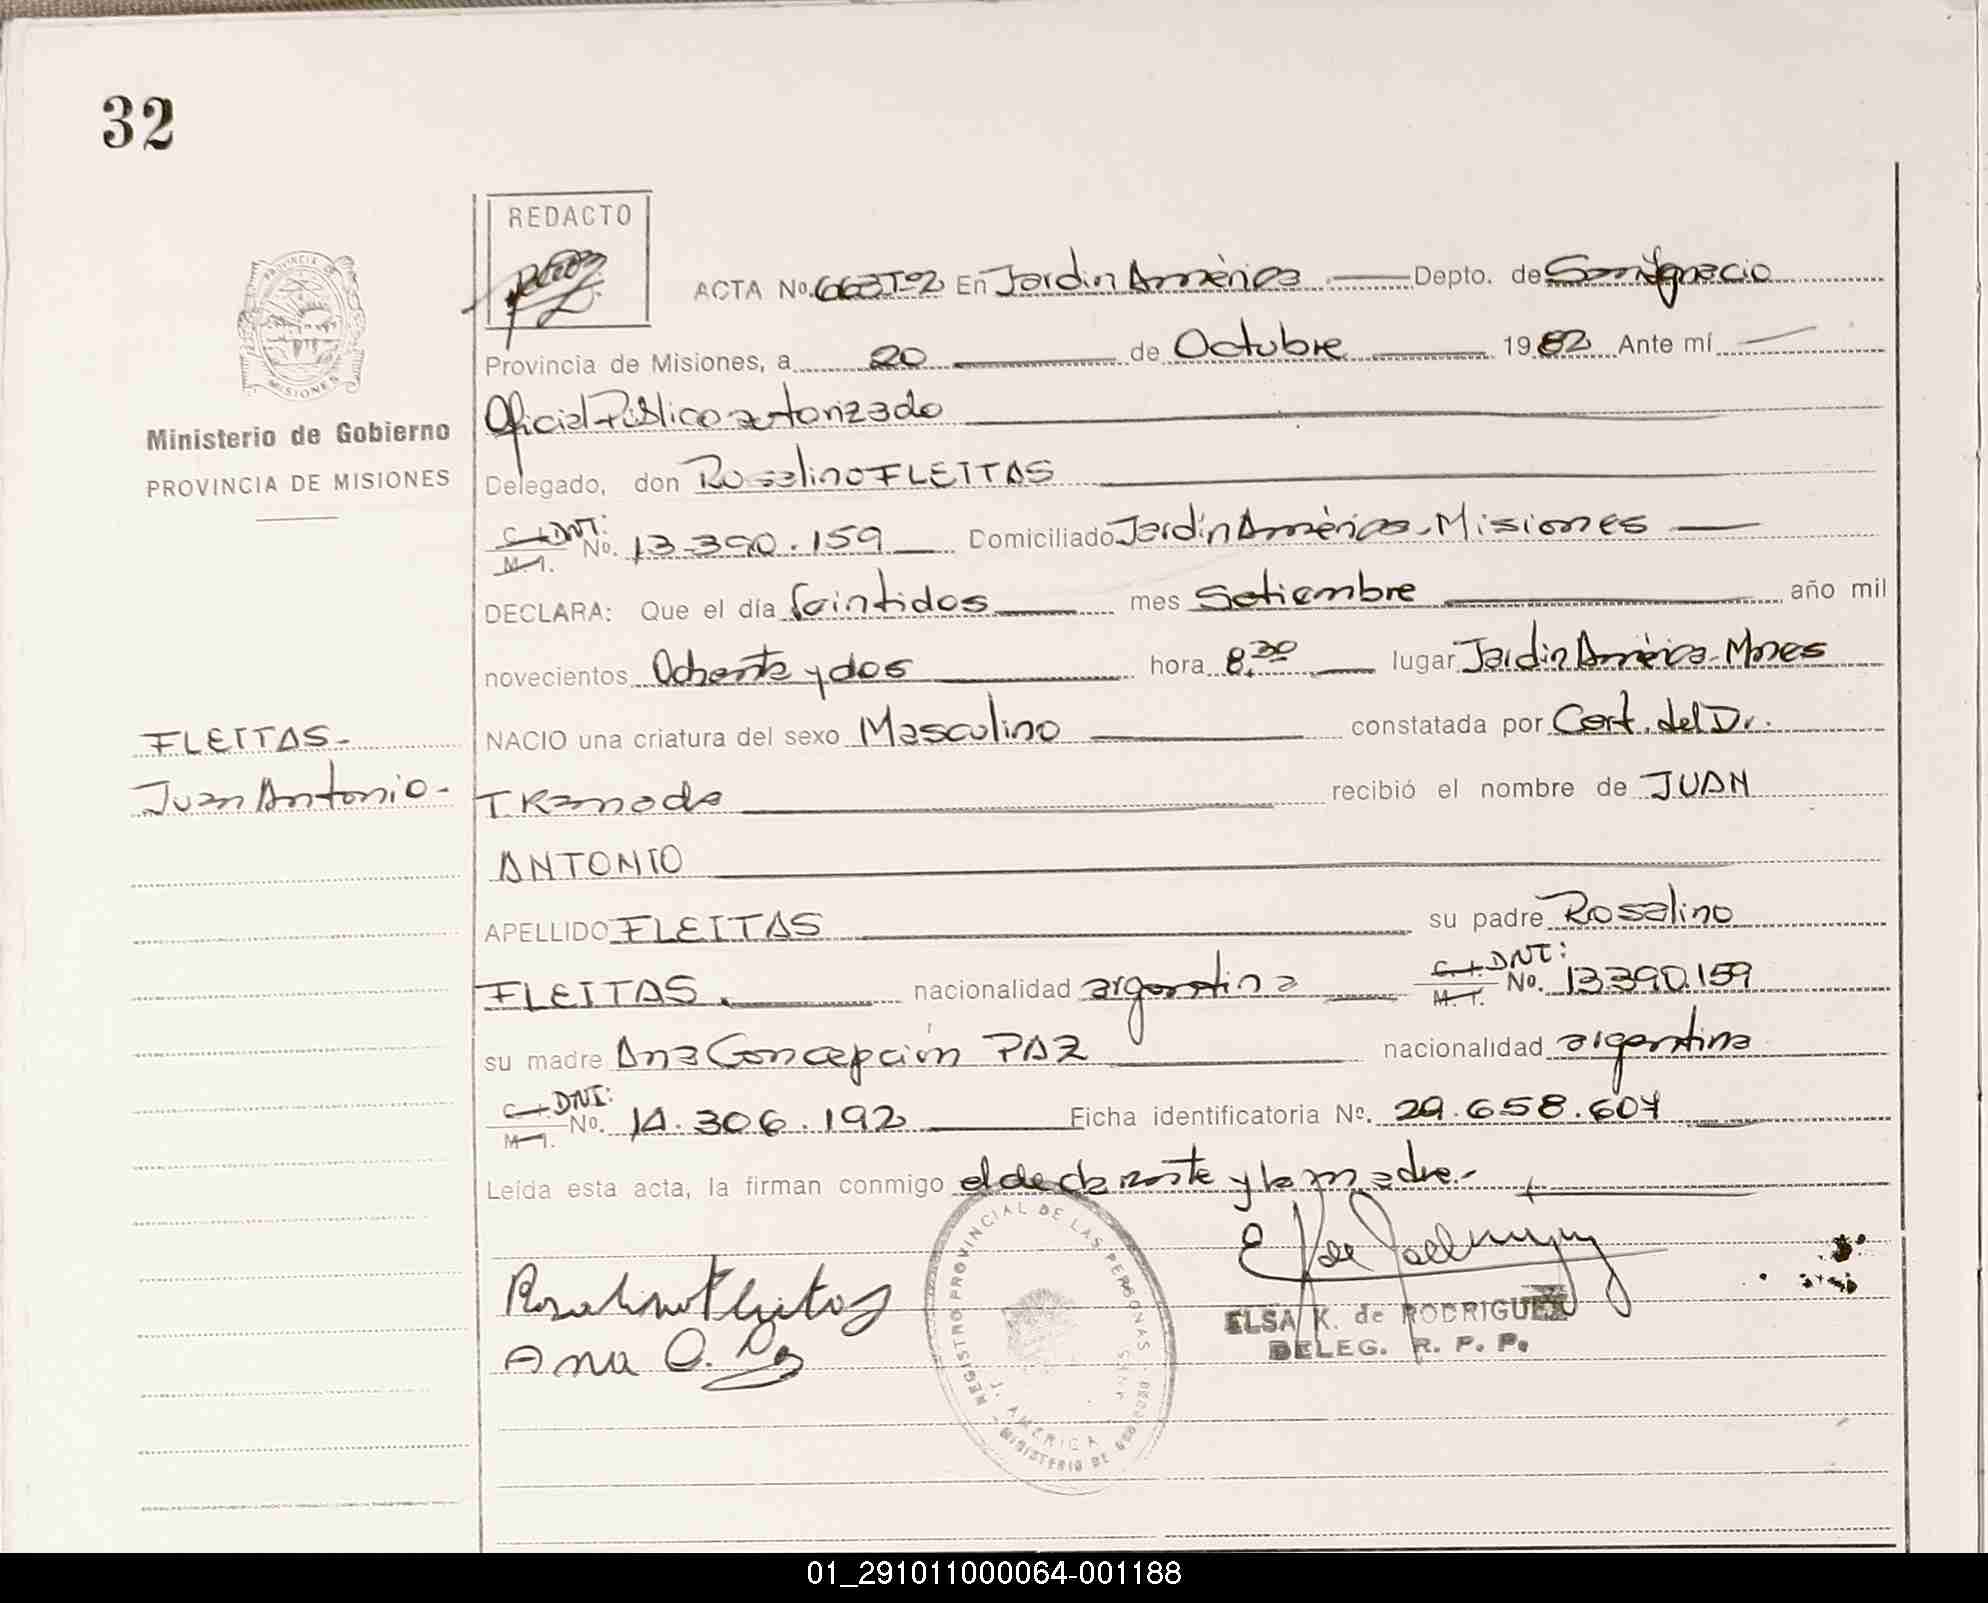 32
REDACTO
ACTA No. 663T°2 En Jardin América Depto. de San Ignacio
Provincia de Misiones, a 20 de Octubre 1982 Ante mí
Oficial Público autorizado
Delegado, don Rosalino FLEITAS
C. I. DNI: M. I. No. 13.390.159 Domiciliado Jardín América - Misiones
DECLARA: Que el día veintidos mes Setiembre año mil
novecientos Ochenta y dos hora 8.30 lugar Jardin América - Mnes
NACIO una criatura del sexo Masculino constatada por Cert. del Dr.
T. Kanada recibió el nombre de JUAN
ANTONIO
APELLIDO FLEITAS su padre Rosalino
FLEITAS. nacionalidad argentina C. I. DNI: M. I. No. 13.390.159
su madre Ana Concepción PAZ nacionalidad argentina
C. I. DNI: M. I. No. 14.306.192 Ficha identificatoria Nº. 29.658.604
Leída esta acta, la firman conmigo el declarante y la madre.-
Rosalino Fleitas
Ana C. Paz
ELSA K. de RODRIGUEZ
DELEG. R. P. P.
REGISTRO PROVINCIAL DE LAS PERSONAS
J. AMERICA
MINISTERIO DE GOBIERNO
PROVINCIA DE
MISIONES
Ministerio de Gobierno
PROVINCIA DE MISIONES
FLEITAS-
Juan Antonio-
01_291011000064-001188